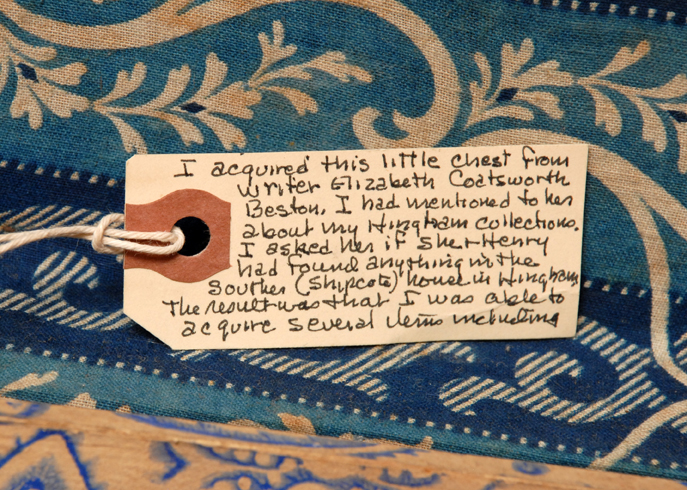 I acquired this little chest from
writer Elizabeth Coatsworth
Beston. I had mentioned to her
about my Hingham collections.
I asked her if she + Henry
had found anything in the
Souther (Shipcote) house in Hingham
The result was that I was able to
acquire several items including